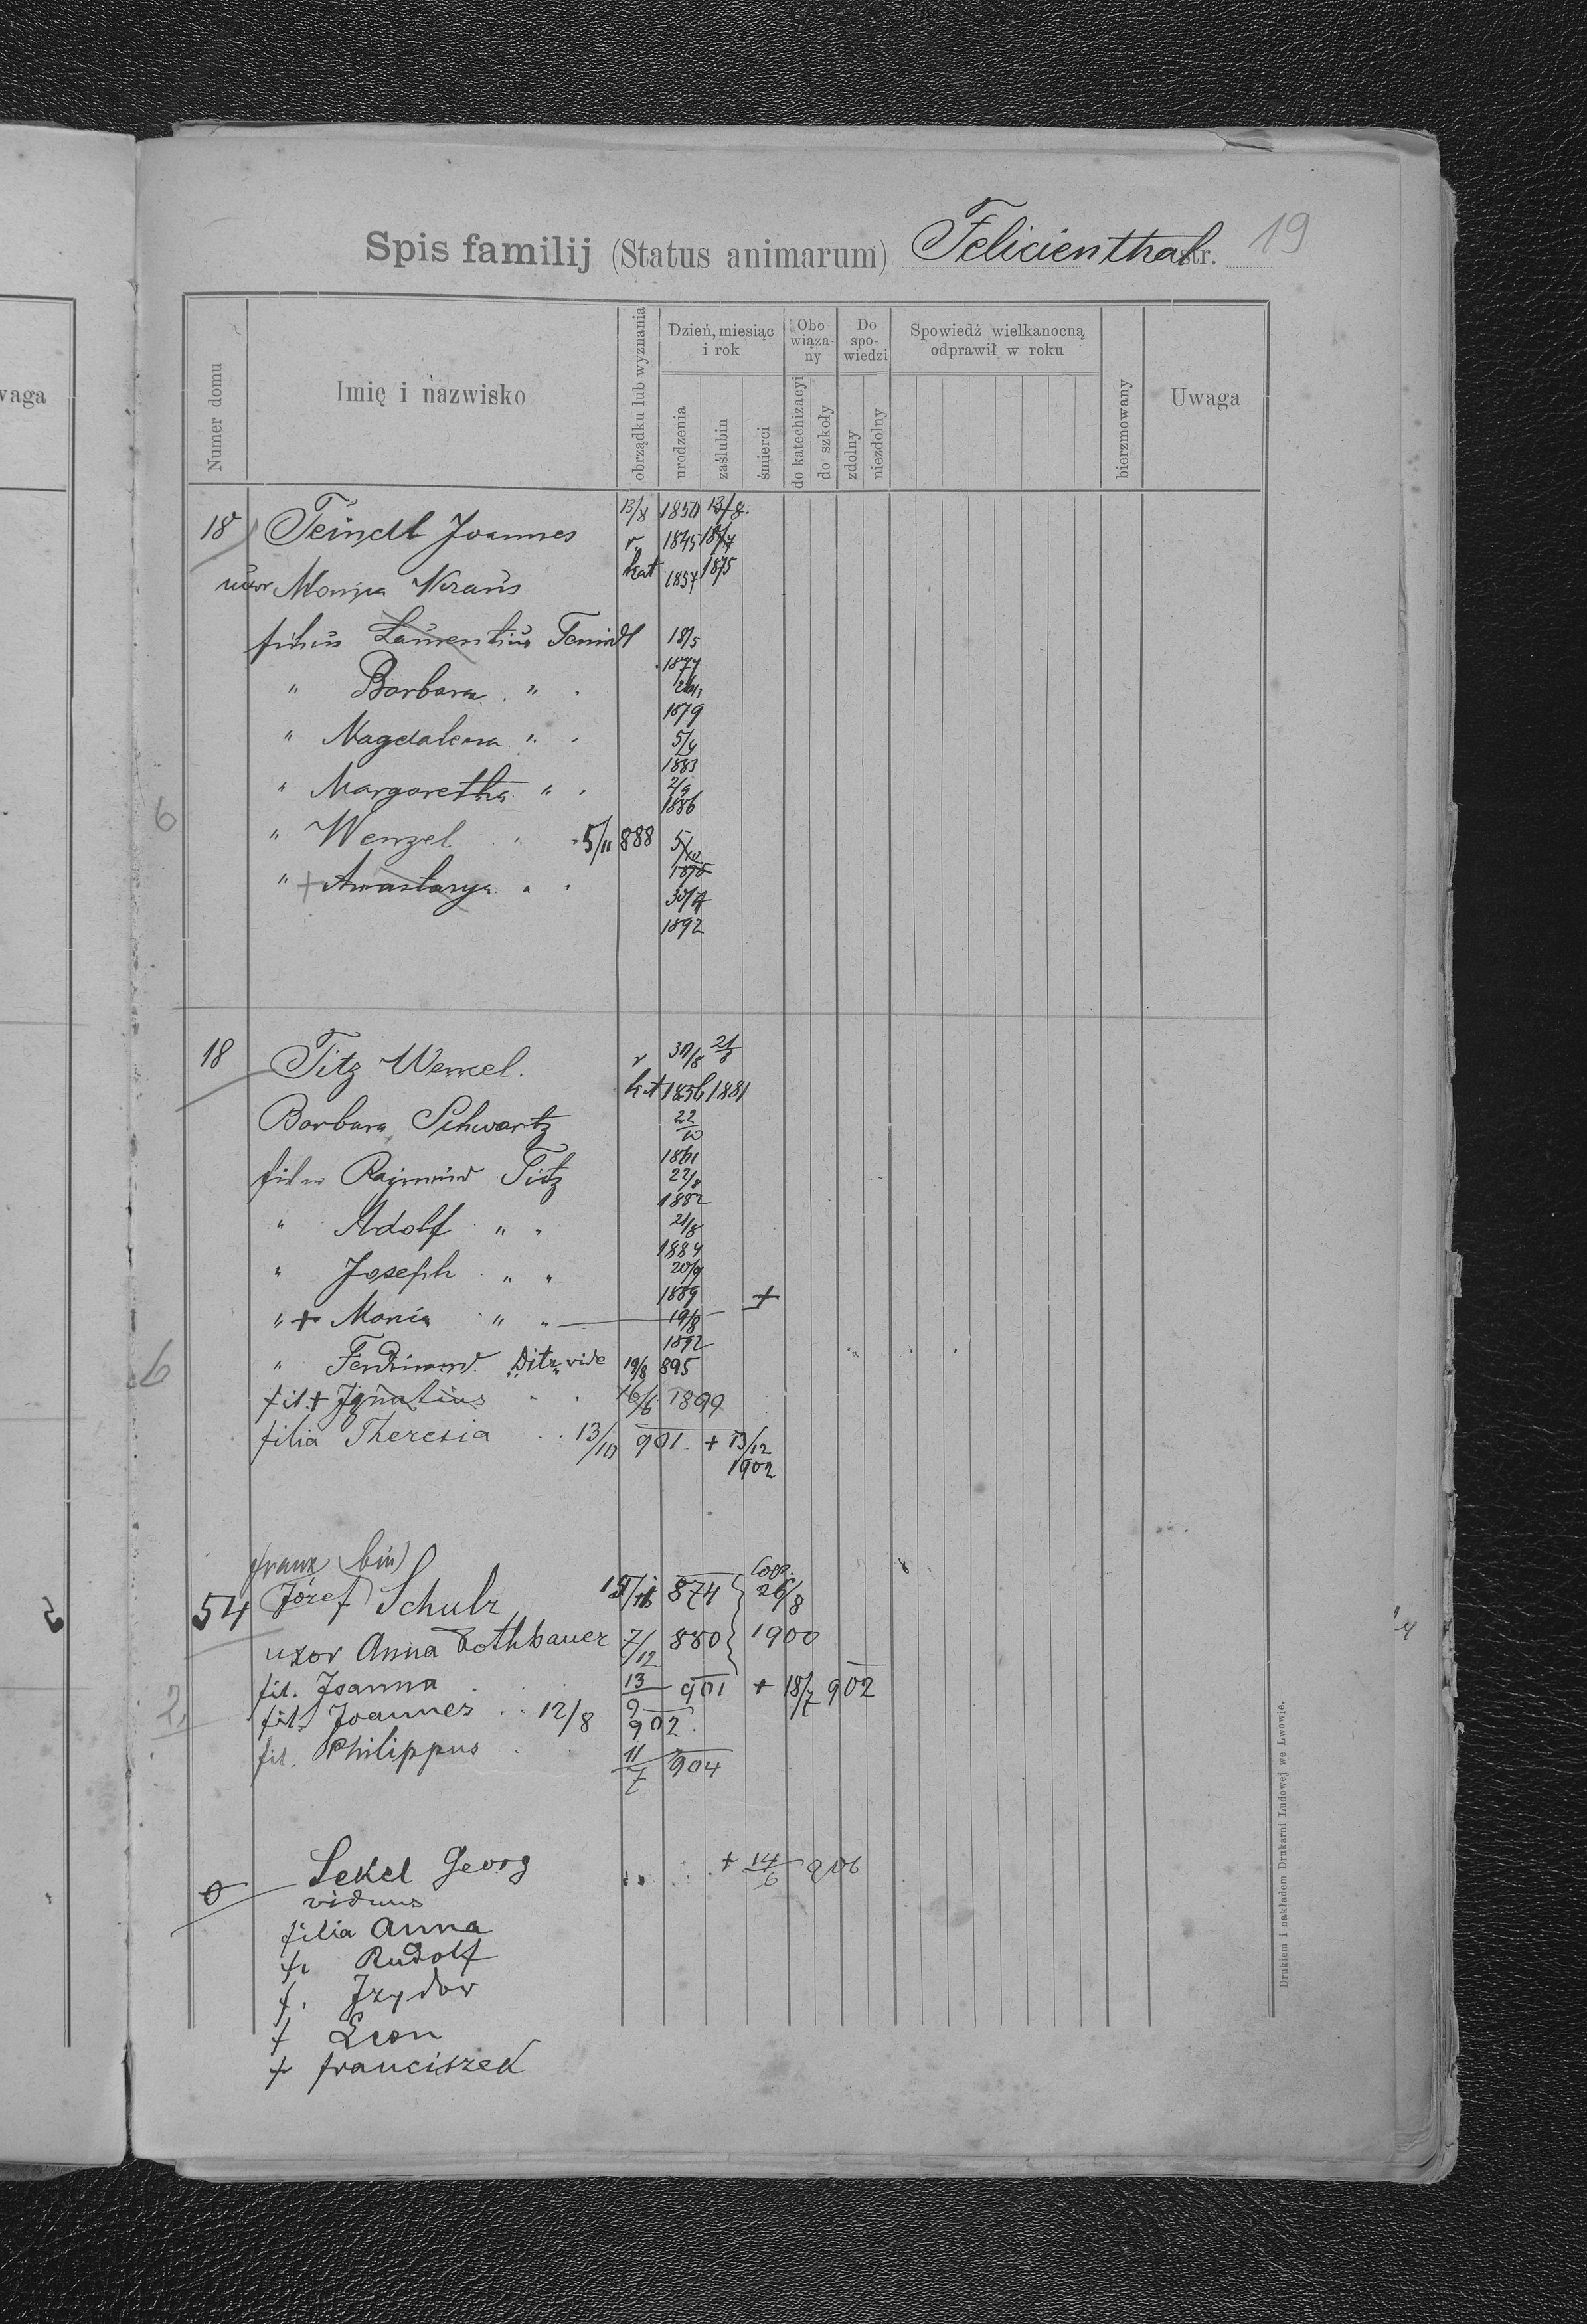 waga
Spis familij (Status animarum) Felicienthal str. 19
Numer domu
Imię i nazwisko
obrządku lub wyznania
Dzień, miesiąc i rok
urodzenia
zaślubin
śmierci
Obowiązany
do katechizacyi
do szkoły
Do spowiedzi
zdolny
niezdolny
Spowiedź wielkanocną odprawił w roku
bierzmowany
Uwaga
18 Teindl Joannes 13/8 1850 13/8.
r. 1845
uxor Kraus kat 1857 1875
filius Laurentius 18/5
1877
" Barbara " .
1879
" Magdalena " . 5/4
1883
" Margaretha " . 2/9
6 1886
" Wenzel . " . 5/11 888 5/10
" + . .
30/4
1892
18 Titz Wenzel. r 30/8 21/8
kat 1856 1881
Barbara Schwartz 22/10
1861
Rajmund Titz 22/8
1882
" Adolf " " 21/8
1884
" Joseph . " " 20/9
1889 +
" + Maria " " 19/8
1892
6 " Ferdinand. Ditz vide 19/8 895
fil. + Ignatius . . 16/6 1899
filia Theresia . . 13/10 901. + 13/12
1902
Franz (bin)
54 Józef Schulz 874 cop. 26/8
uxor Anna Rothbauer 7/12 880 1900
fil. Joanna . 13/9 901 + 18/7 902
2. fil. Joannes . . 12/8 902.
fil. Philippus . 11/7 904
0 Sekel Georg + 14/6 906
viduus
filia Anna
f. Rudolf
f. Izydor
f Leon
f franciszek
Drukiem i nakładem Drukarni Ludowej we Lwowie.